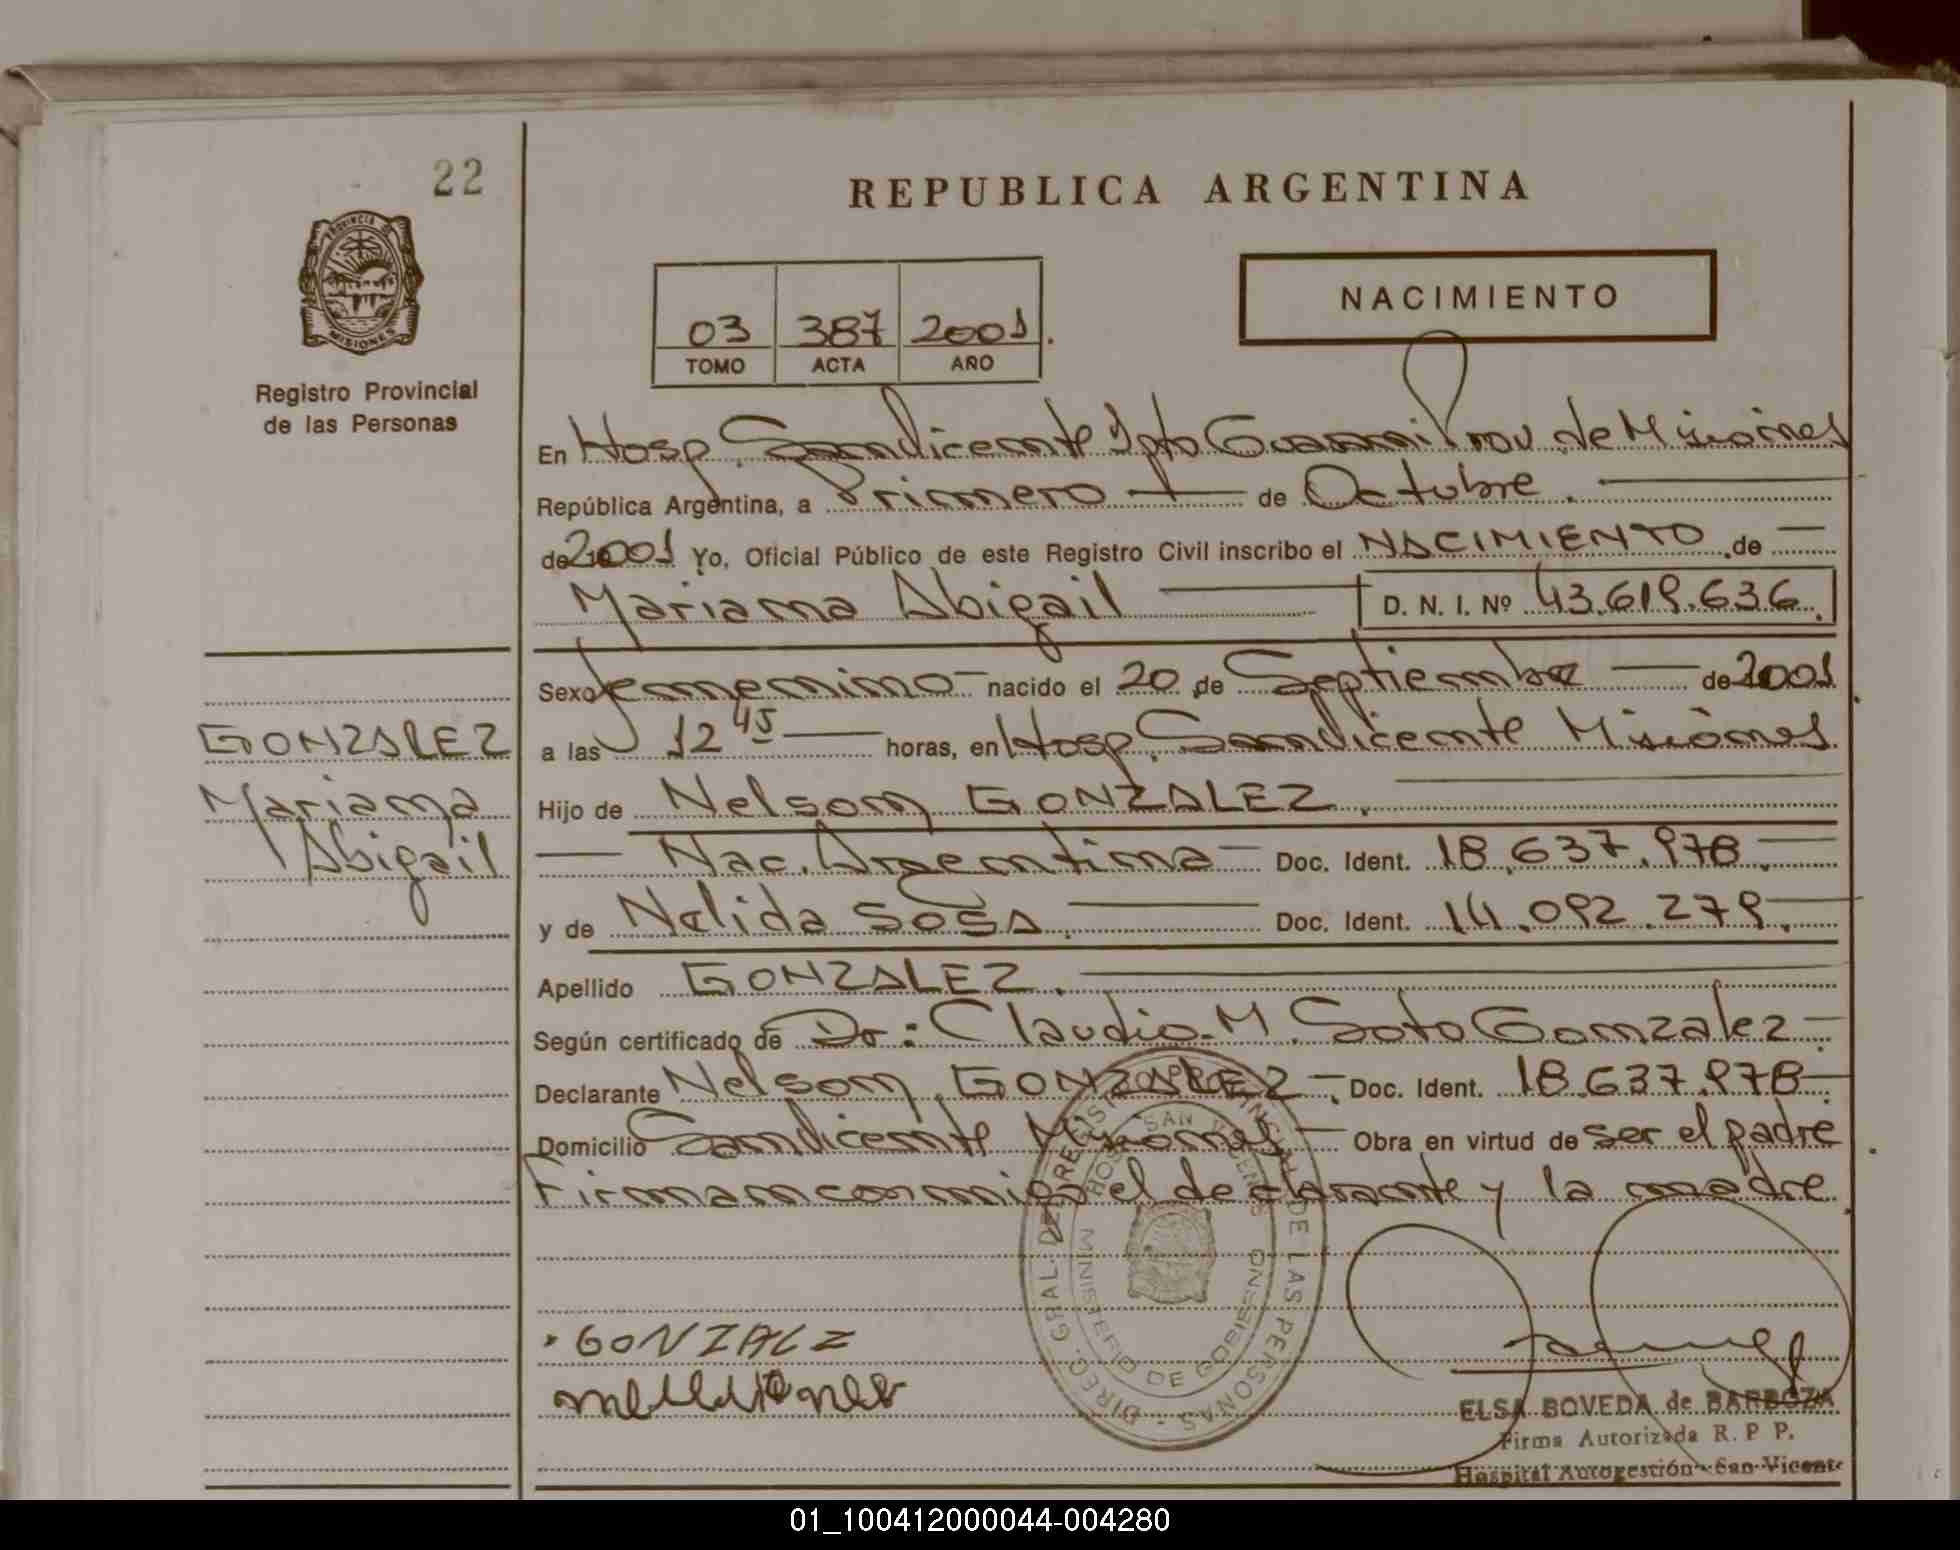 22
PROVINCIA DE
MISIONES
Registro Provincial
de las Personas
REPUBLICA ARGENTINA
03 387 2001.
TOMO ACTA AÑO
NACIMIENTO
En Hosp. Sandicente Dpto Guarani Prov. de Misiones
República Argentina, a Primero de Octubre.
de 2001 Yo, Oficial Público de este Registro Civil inscribo el NACIMIENTO de
Mariana Abigail D. N. I. Nº 43.619.636.
Sexo femenino nacido el 20 de Septiembre de 2001.
a las 12 45 horas, en Hosp. Sandicente Misiones.
Hijo de Nelson GONZALEZ.
Nac. Argentina Doc. Ident. 18.637.978.
y de Nelida SOSA. Doc. Ident. 14.092.279.
Apellido GONZALEZ.
Según certificado de Dr: Claudio M. Soto Gonzalez.
Declarante Nelson GONZALEZ. Doc. Ident. 18.637.978.
Domicilio Sandicente Misiones Obra en virtud de ser el padre.
Firman conmigo el declarante y la madre.
GONZALEZ
Mariana
Abigail
GONZALZ
DIREC. GRAL. DEL REGISTRO PROVINCIAL DE LAS PERSONAS
HOSP. SAN VICENTE
MINISTERIO DE GOBIERNO
ELSA BOVEDA de BARBOZA
Firma Autorizada R. P P.
Hospital Autogestión - San Vicente
01_100412000044-004280